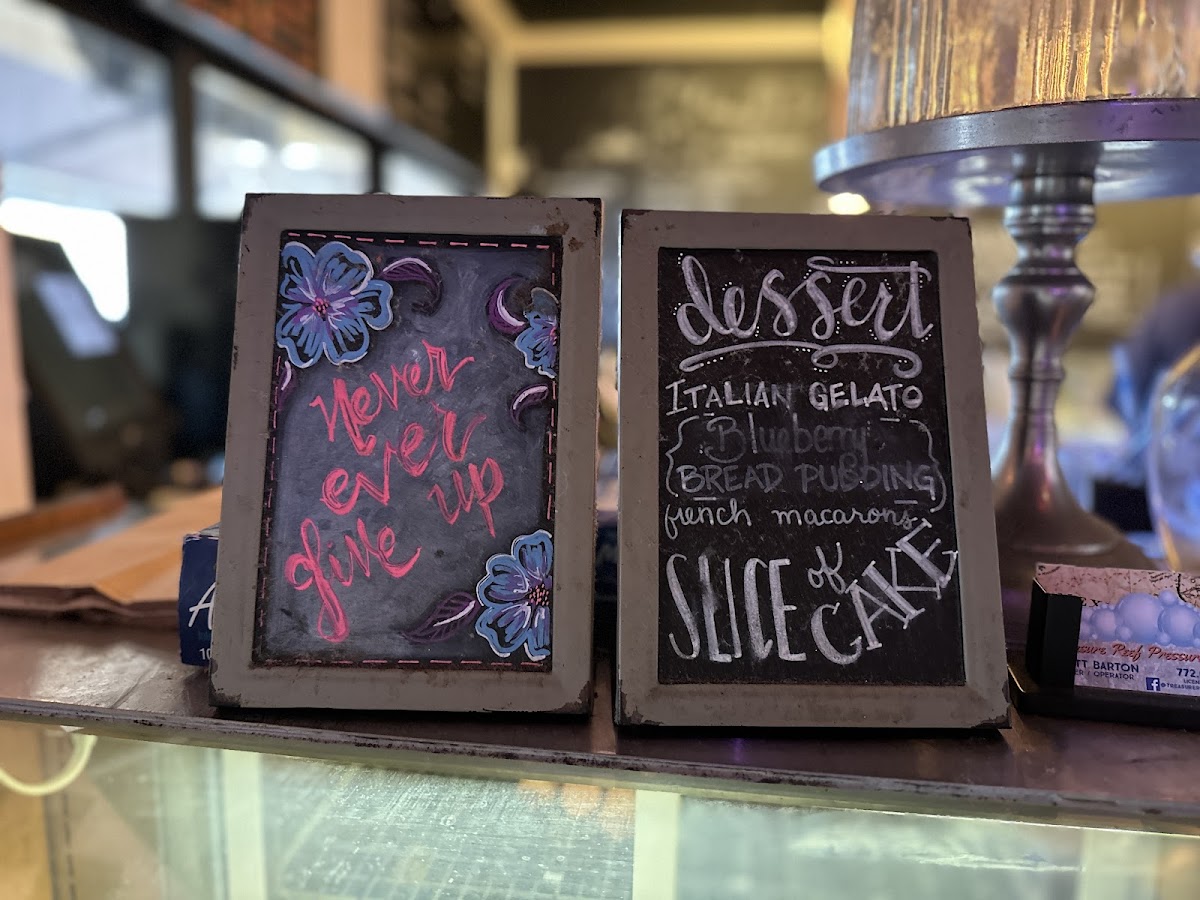 Never
ever
give up
dessert
ITALIAN GELATO
Blueberry
BREAD PUDDING
french macarons
SLICE of
CAKE
A
10
asure Reef Pressure
TT BARTON
ER / OPERATOR
772.
LICEN
@TREASURE